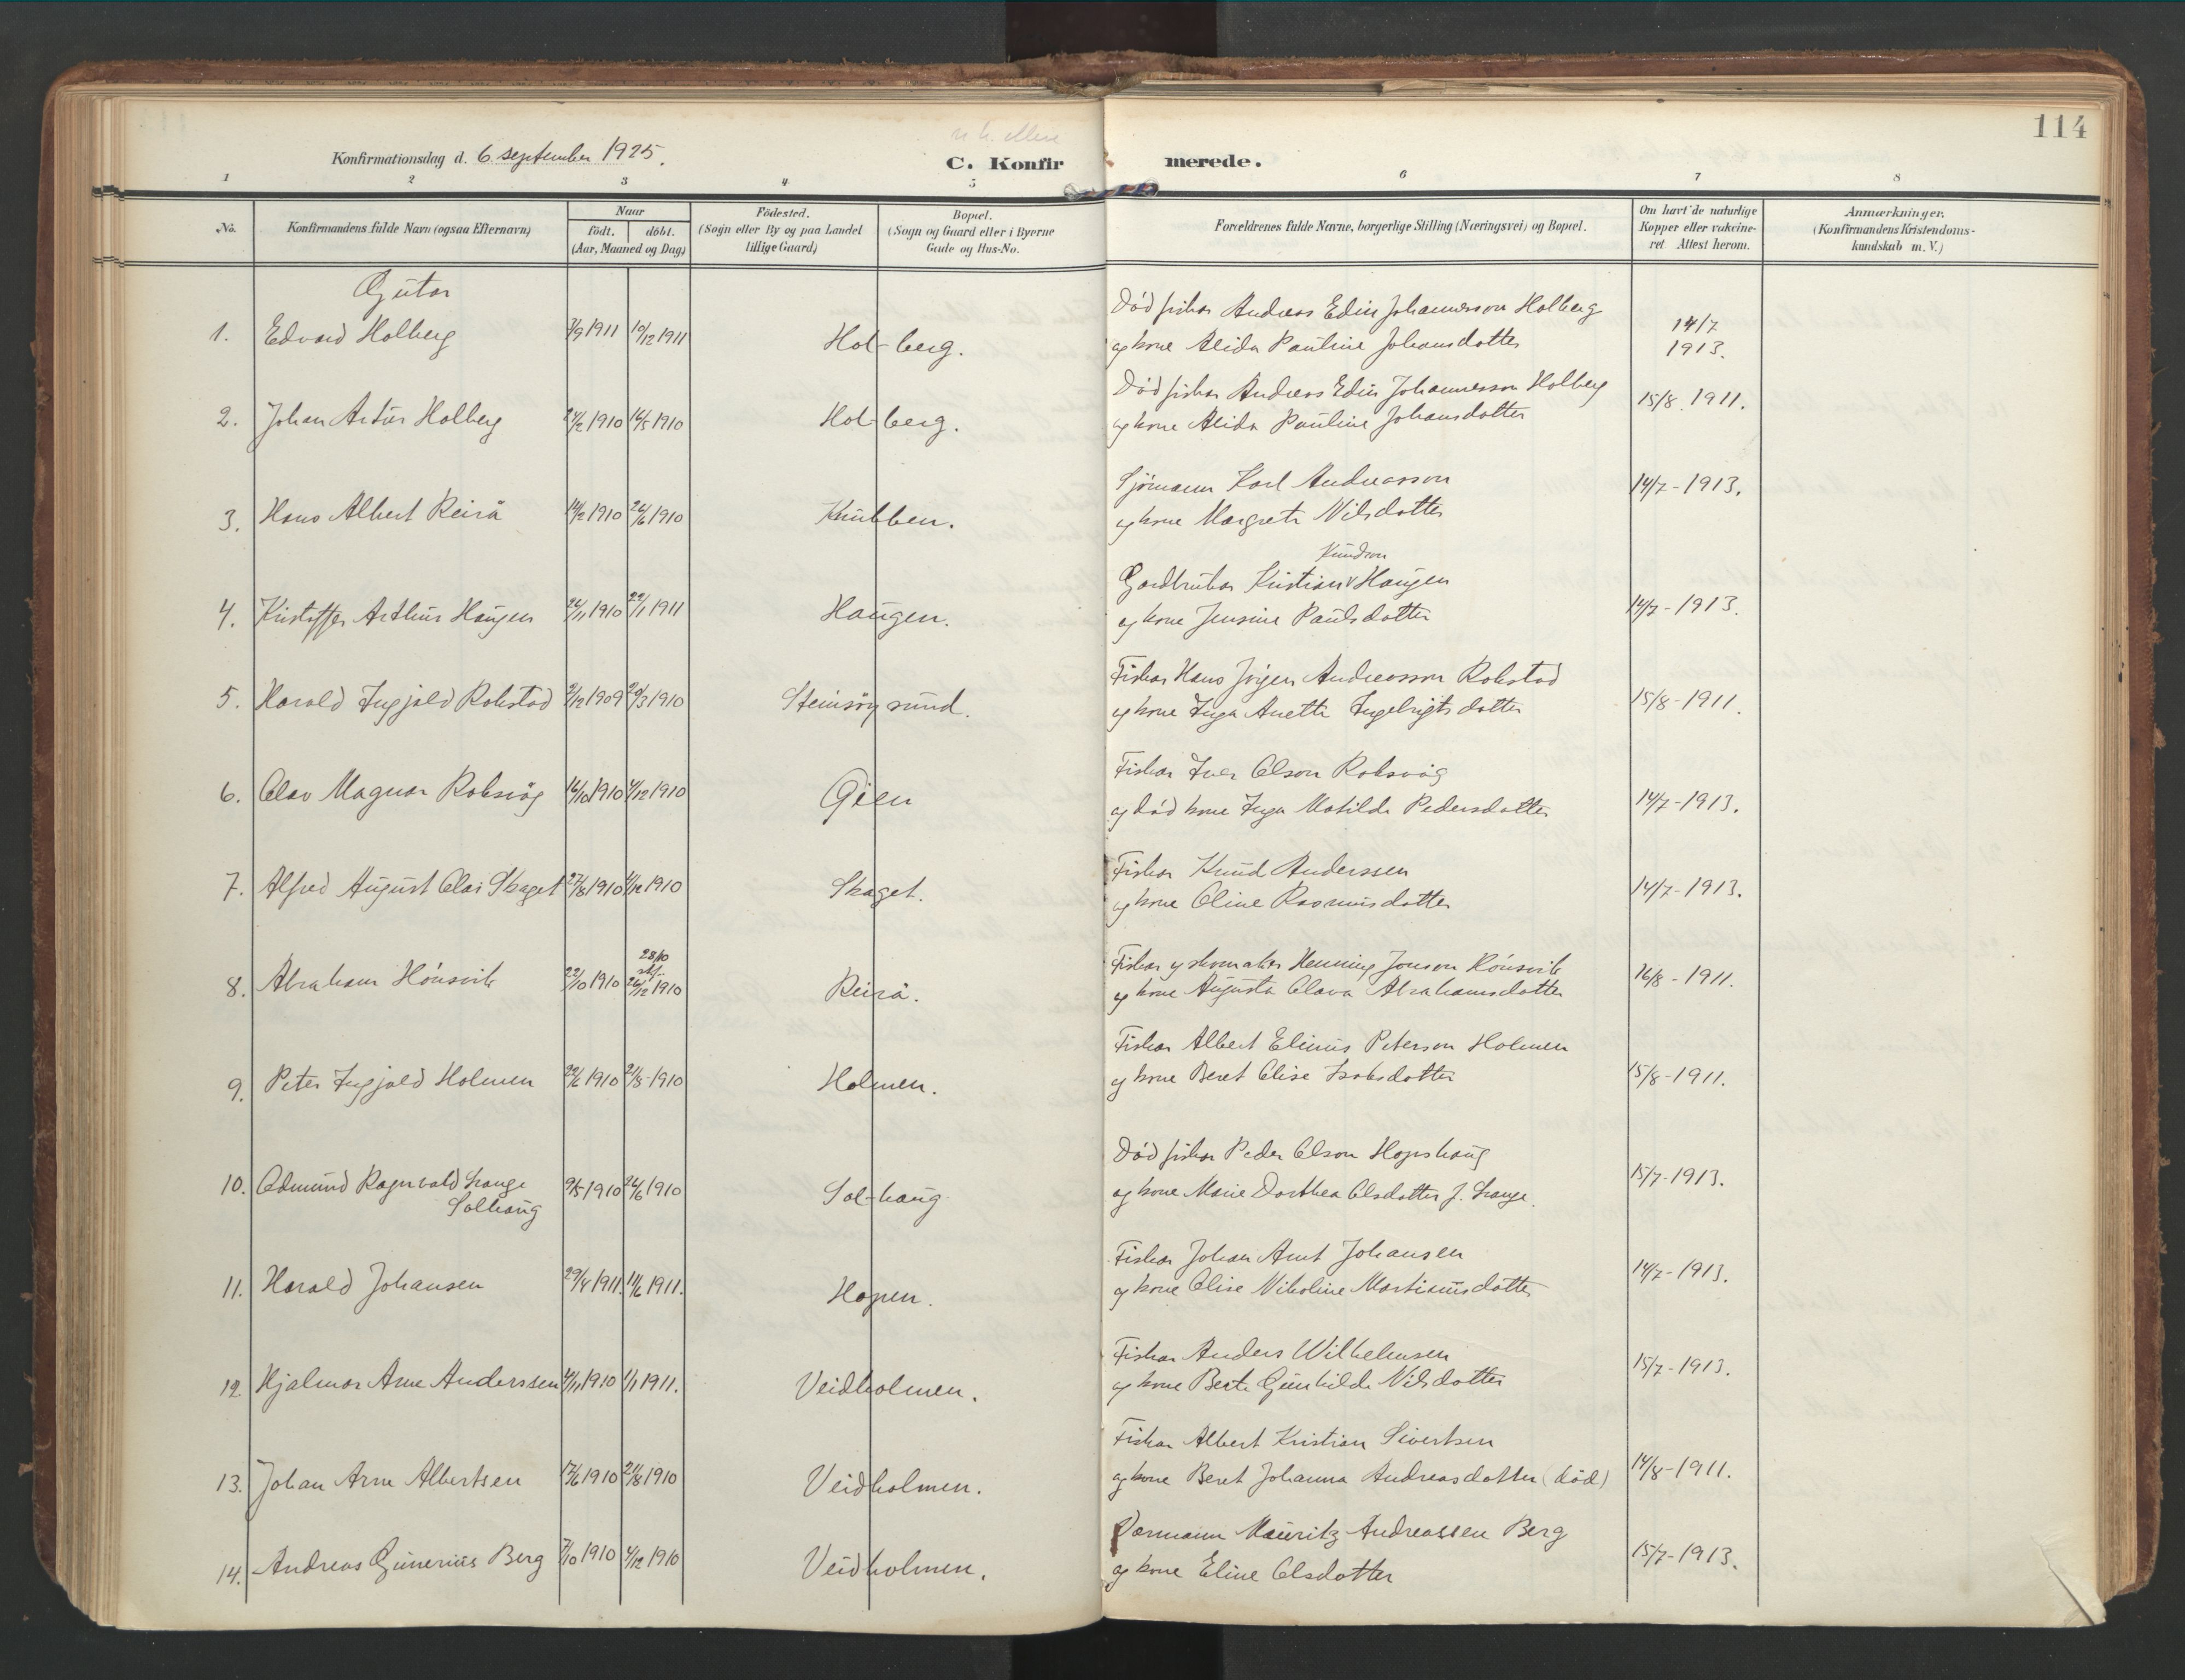 114
Konfirmationsdag d. 6. september 1925.
C. Konfirmerede.
1 2 3 4 5 6 7 8
No.
Konfirmandens fulde Navn (ogsaa Efternavn)
Naar
født. døbt.
(Aar, Maaned og Dag)
Fødested.
(Sogn eller By og paa Landet
tillige Gaard)
Bopæl.
(Sogn og Gaard eller i Byerne
Gade og Hus-No.
Forældrenes fulde Navne, borgerlige Stilling (Næringsvei) og Bopæl.
Om havt de naturlige
Kopper eller vakcine-
ret Attest herom.
Anmærkninger.
(Konfirmandens Kristendoms-
kundskab m. V.)
Gutar
1. Edvard Holberg 7/9 1911 10/12 1911 Hol-berg.
Død fiskar Andreas Edin Johannesson Holberg
og kone Alida Pauline Johansdotter
14/7
1913.
2. Johan Artur Holberg 24/2 1910 16/5 1910 Hol-berg.
Død fiskar Andreas Edin Johannesson Holberg
og kone Alida Pauline Johansdotter
15/8. 1911.
3. Hans Albert Reirå 14/2 1910 26/6 1910 Knubben.
Sjömann Karl Andreasson
og kone Margrete Nilsdotter
14/7-1913.
4. Kristoffer Arthur Haugen 26/11 1910 22/1 1911 Haugen.
Knudson
Gardbrukar Kristian Haugen
og kone Jensine Paulsdotter
14/7-1913.
5. Harald Ingjald Rokstad 2/12 1909 20/3 1910 Steinsöysund.
Fiskar Hans Jörgen Andreasson Rokstad
og kone Inga Anette Ingebrigtsdotter
15/8-1911.
6. Olav Magnar Roksvåg 16/10 1910 4/12 1910 Gien
Fiskar Iver Olson Roksvåg
og död kone Inga Matilde Pedersdotter
14/7-1913.
7. Alfred August Olai Skaget 27/8 1910 4/12 1910 Skaget.
Fiskar Knud Anderssen
og kone Oline Rasmusdotter
14/7-1913.
28/10
8. Abraham Hönsvik 22/10 1910 26/12 1910 Reirå.
Fiskar og skomaker Henning Jonson Hönsvik
og kone Augusta Olava Abrahamsdotter
16/8-1911.
9. Peter Ingjald Holmen 22/6 1910 21/8-1910 Holmen.
Fiskar Albert Elinus Peterson Holmen
og kone Beret Elise Isaksdotter
15/8-1911.
10. Odmund Ragnvald Lange
Solhaug 9/5 1910 26/6 1910 Sol-haug
Død fiskar Peder Olson Hopshaug
og kone Marie Dorthea Olsdotter f. Lange.
15/7-1913.
11. Harald Johansen 29/4 1911. 11/6 1911. Hopen.
Fiskar Johan Arnt Johansen
og kone Elise Nikoline Martinusdotter
14/7-1913.
12. Hjalmar Arne Anderssen 4/11 1910 1/1 1911. Veidholmen.
Fiskar Anders Wilhelmsen
og kone Berte Gunhilde Nilsdotter
15/7-1913.
13. Johan Arne Albertsen 17/6 1910 21/8 1910 Veidholmen.
Fiskar Albert Kristian Sivertsen
og kone Beret Johanna Andreasdotter (död)
14/8-1911.
14. Andreas Gunerius Berg 7/10 1910 4/12 1910 Veidholmen.
Formann Mauritz Andreassen Berg
og kone Eline Olsdotter
15/7-1913.